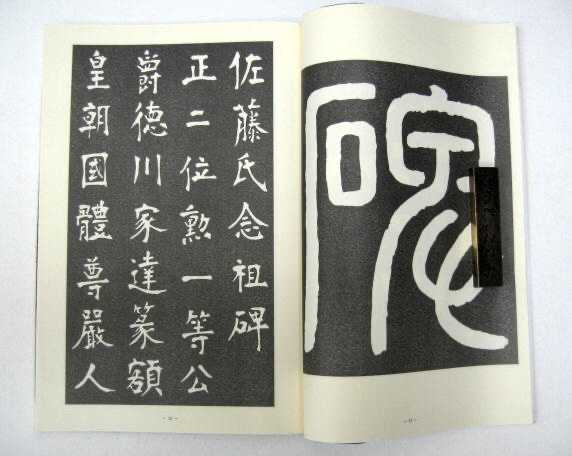 佐藤氏念祖碑
正二位勲一等公
爵徳川家達篆額
皇朝國體尊嚴人